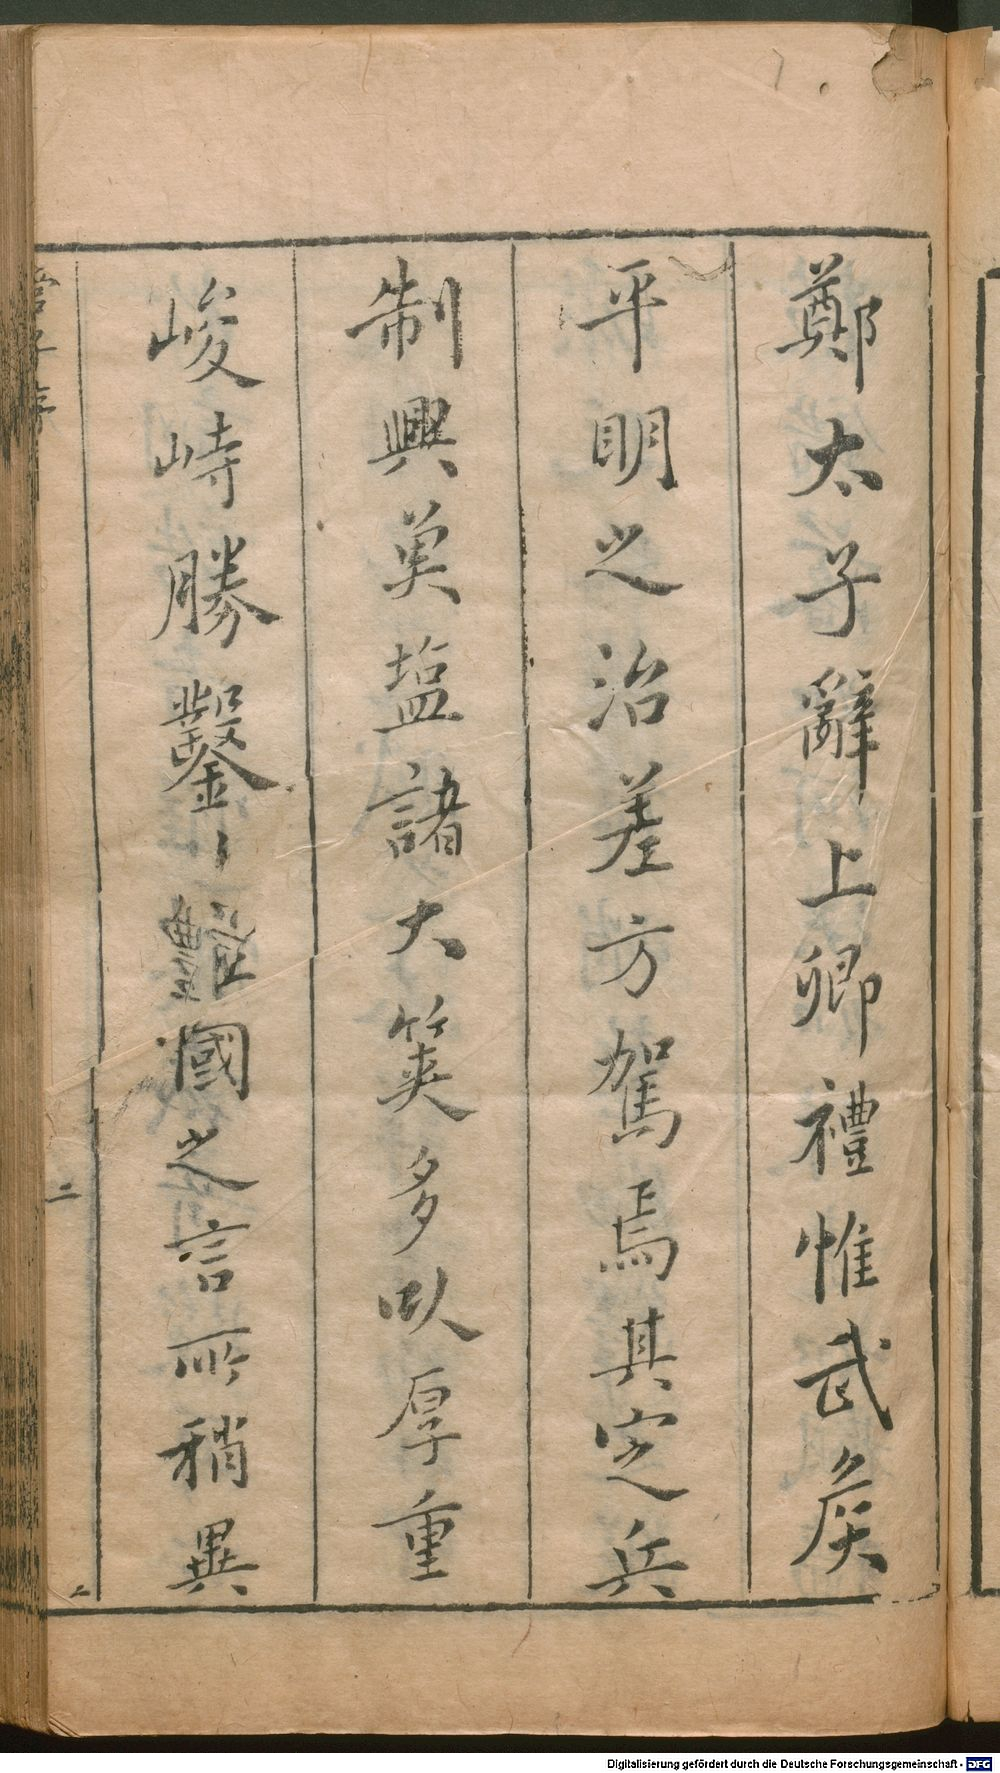 鄭太子辭上卿禮惟武矦
平明之治差方駕焉其定兵
制興莢塩諸大筴多㕥厚重
峻峙勝鑿〻豔國之言所稍異
管子序
二
Digitalisierung gefördert durch die Deutsche Forschungsgemeinschaft - DFG